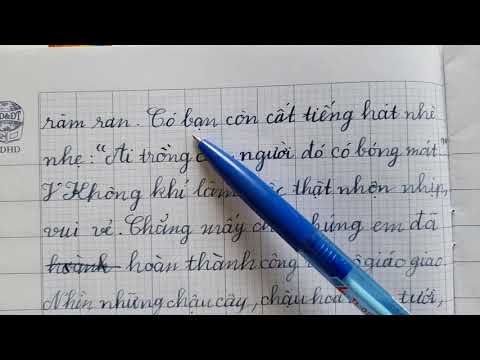 răm ran. Có bạn còn cất tiếng hát nhè
nhẹ: "Ai trồng người đó có bóng mát"
Không khí làm thật nhộn nhịp,
vui vẻ. Chẳng mấy chúng em đã
hoành hoàn thành công giáo giao
Nhìn những chậu cây, chậu hoa tươi,
DHD